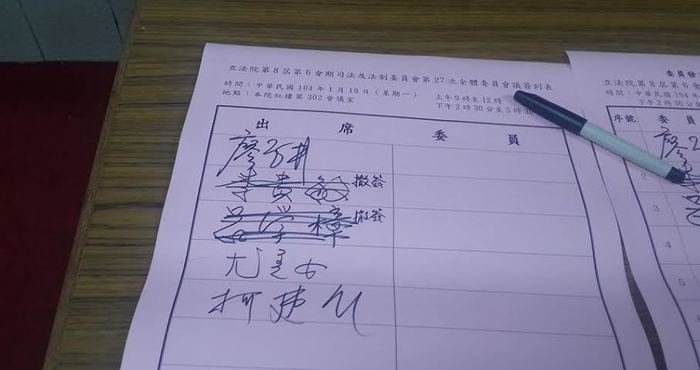 立法院第8屆第6會期司法及法制委員會第27次全體委員會議簽到表
時間：中華民國104年1月19日（星期一） 上午9時至12時
下午2時30分至5時30
地點：本院紅樓第302會議室
出席委員
廖正井
李貴敏 撤簽
呂學樟 撤簽
尤美女
柯建銘
委員發
立法院第8屆第6會
時間：中華民國
下午2時
序號 委員
廖正
2
3 呂
4
5